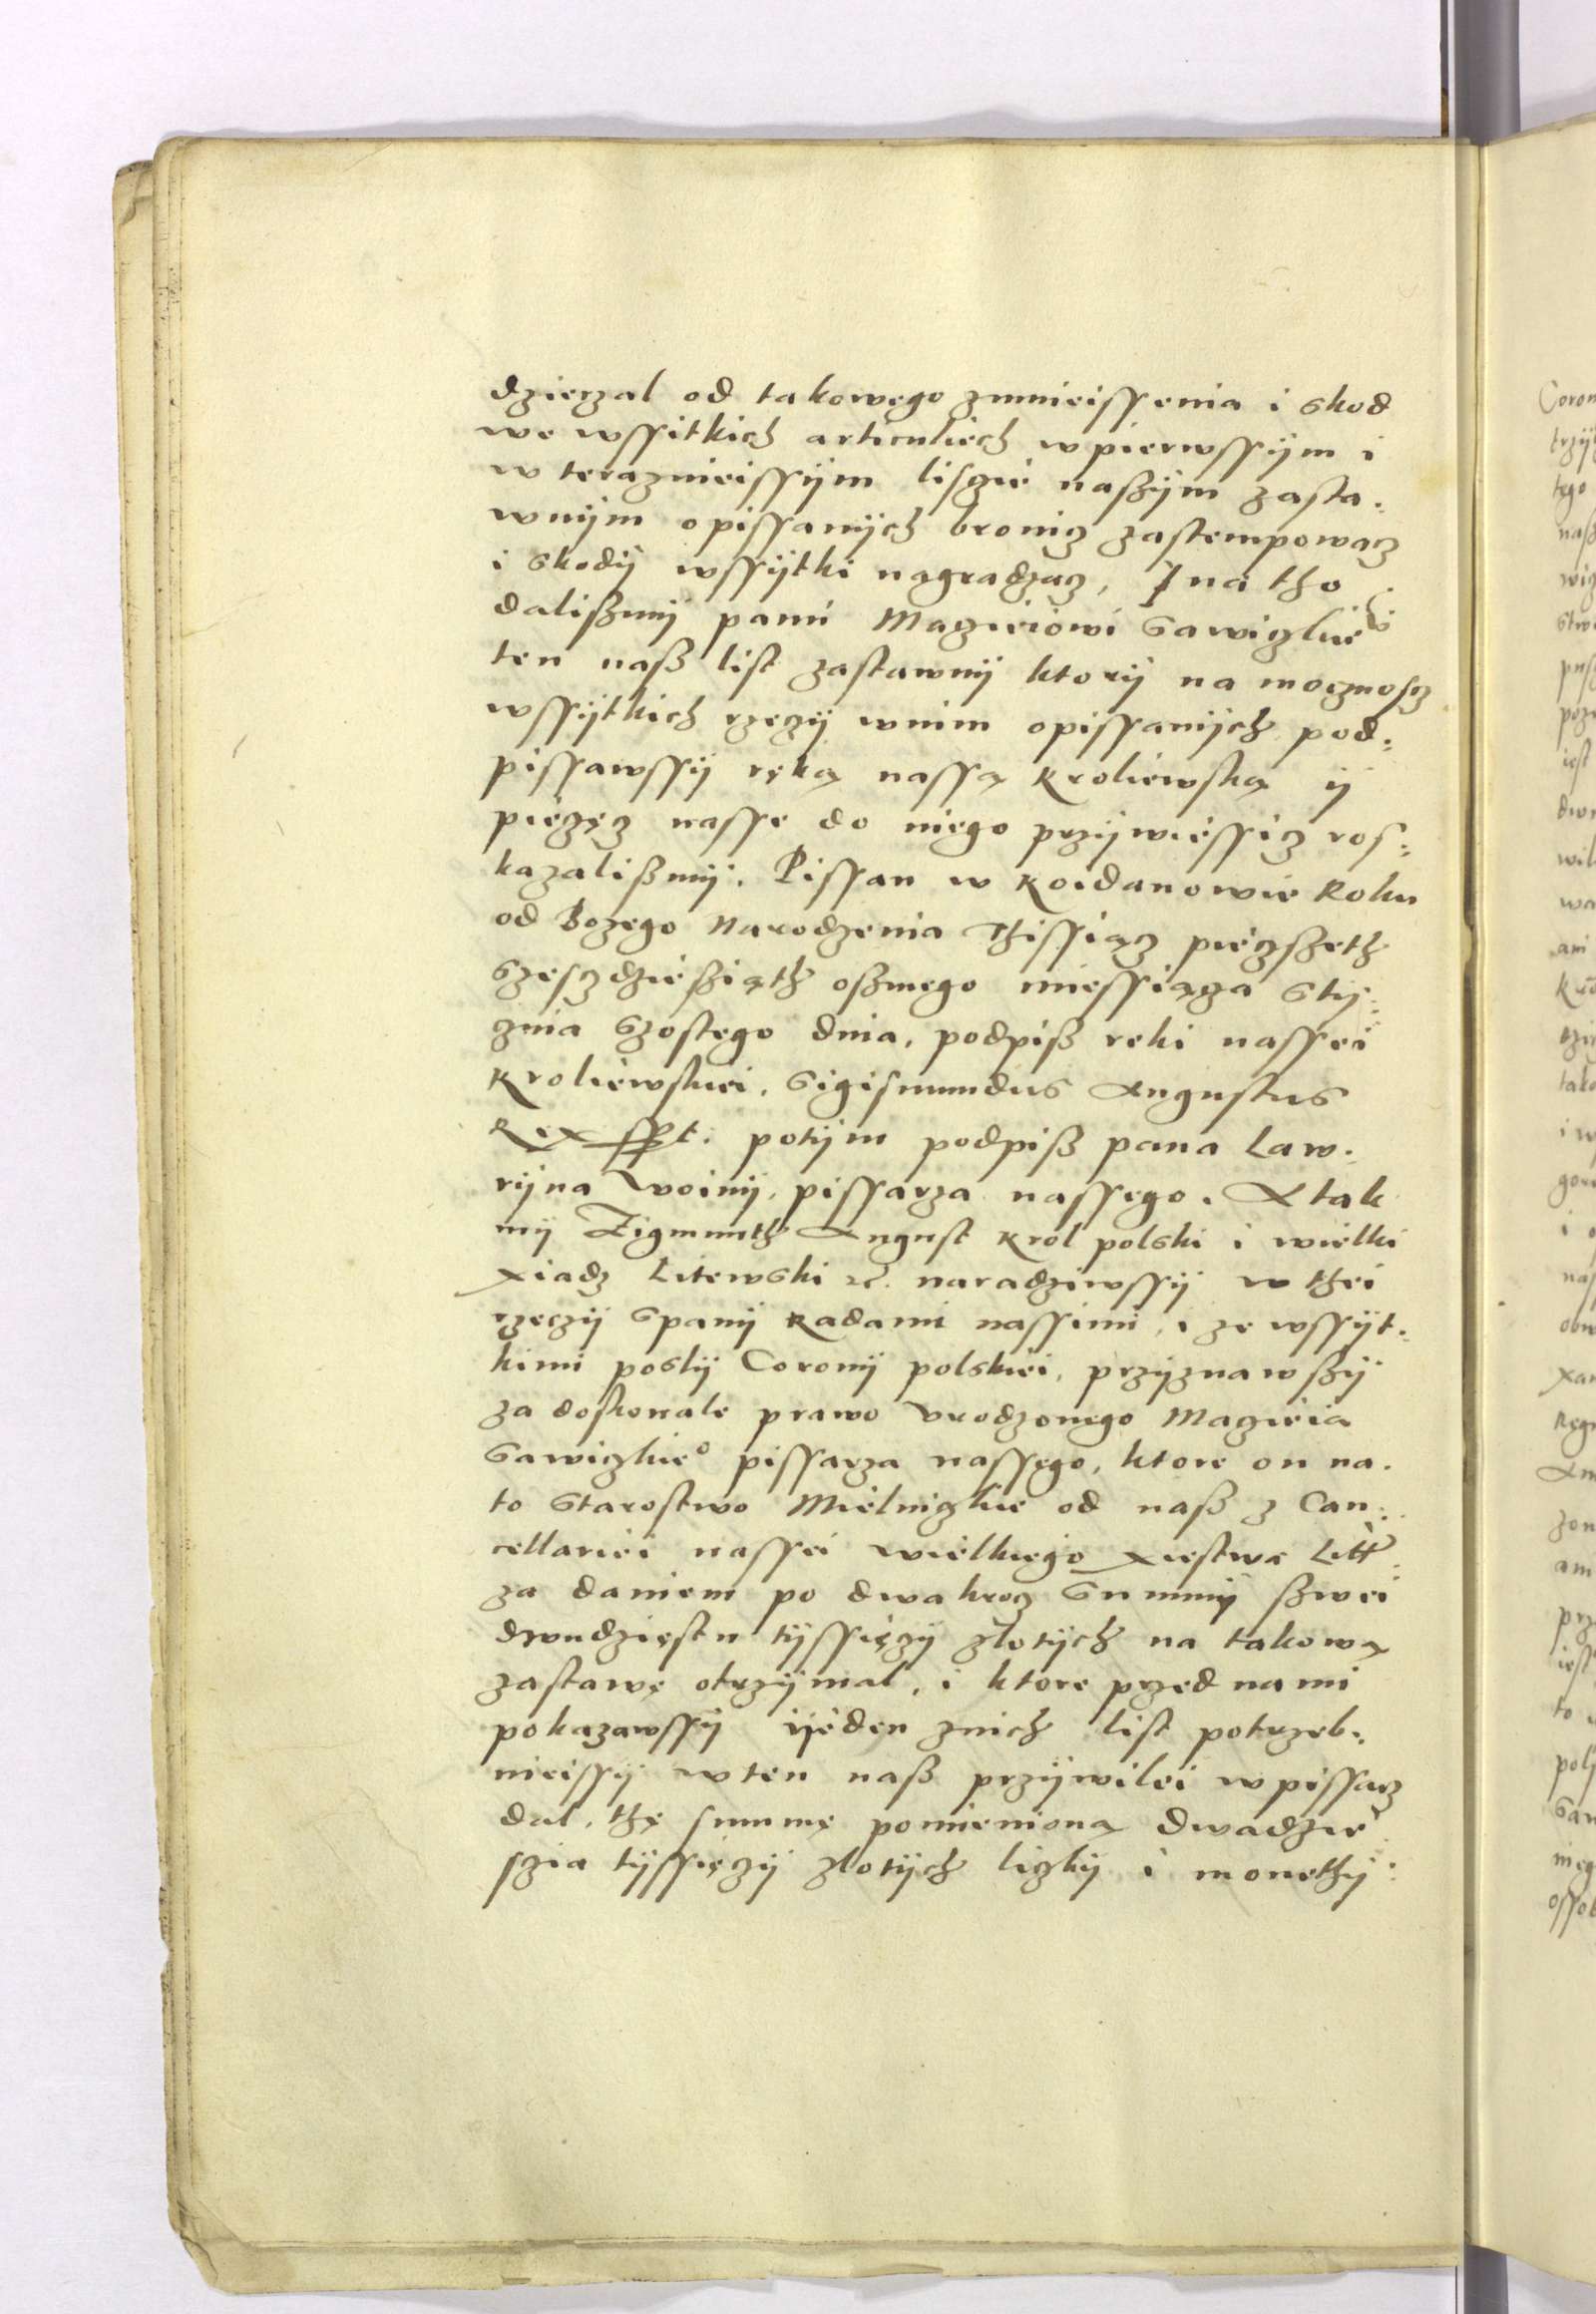 dzierzal od takowego zmnieissenia i skod
we wssitkich articuliech w pierwssÿm i
w teraznieissÿm liscie naßÿm zasta:
wnÿm opissanÿch bronicz zastempowacz
i skodÿ wssÿtki nagradzacz, I na tho
dalißmÿ panu Maczieiowi Sawiczkiewi
ten naß list zastawnÿ ktorÿ na mocznoscz
wssÿtkich rzeczÿ wnim opissanÿch pod:
pissawssÿ ręką nassą Kroliewską ÿ
pieczęcz nasse do niego przÿwiessicz ros:
kazalißmÿ. Pissan w Koidanowie Roku
od Bozego Narodzenia Thissiącz pieczszeth
Szesczdzießiąth oßmego miessiącza Stÿ:
znia Szostego dnia, podpiß reki nassei
Kroliewskiei. Sigismundus Augustus
Rex sspt. potÿm podpiß pana Law:
rÿna Woinÿ, pissarza nassego. A tak
mÿ Zigmunth August Krol polski i wielki
Xiadz Litewski etc. naradziwssÿ w thei
rzeczÿ Spanÿ Radami nassimi, i ze wssÿt:
kimi poslÿ Coronÿ polskiei, przÿznawßÿ
za doskonale prawo Vrodzonego Maczieia
Sawiczkie° pissarza nassego, ktore on na
to Starostwo Mielniczkie od naß z Can:
cellariei nassei wielkiego Xiestwa Litt
za daniem po dwakrocz Summÿ ßwei
dwudziestu tÿssięczÿ zlotÿch na takową
zastawę otrzÿmal, i ktore przed nami
pokazawssÿ ÿeden znich list potrzeb:
nieissÿ w ten naß przÿwilei wpissacz
dal, thę summę pomienioną dwadzie
sczia tÿssięczÿ zlotÿch liczbÿ i monethÿ: